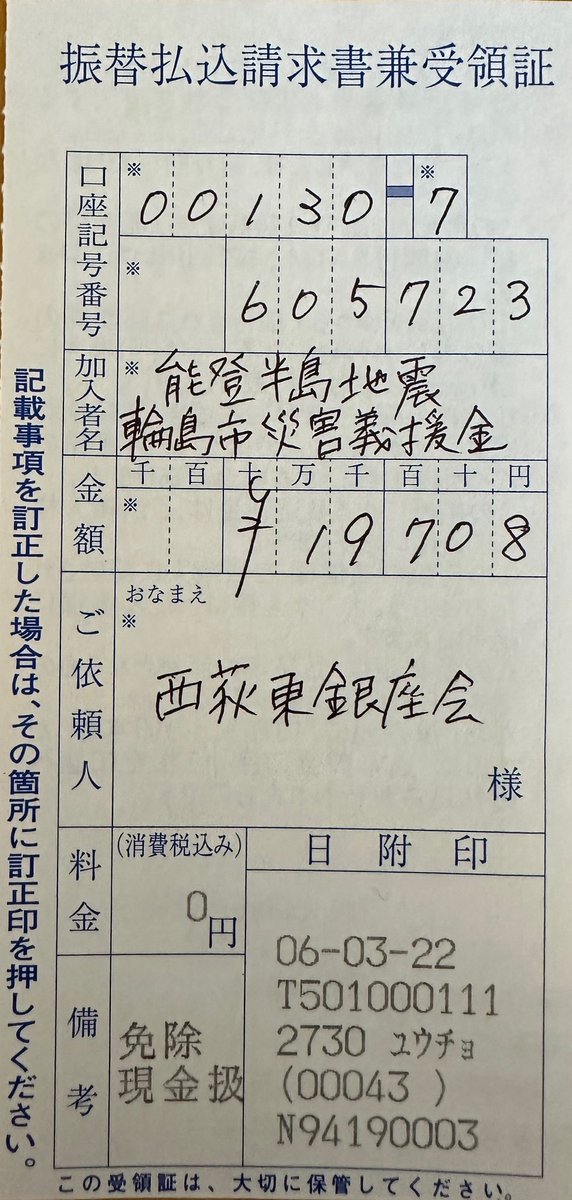 振替払込請求書兼受領証
口座記号番号
※ 00130-7 ※
※ 605723
加入者名
※ 能登半島地震
輪島市災害義援金
金額
千 百 十 万 千 百 十 円
※ ¥19708
ご依頼人
おなまえ
※
西荻東銀座会
様
料金
(消費税込み)
0円
日附印
06-03-22
T501000111
2730 ユウチョ
(00043 )
N94190003
備考
免除
現金扱
記載事項を訂正した場合は、その箇所に訂正印を押してください。
この受領証は、大切に保管してください。